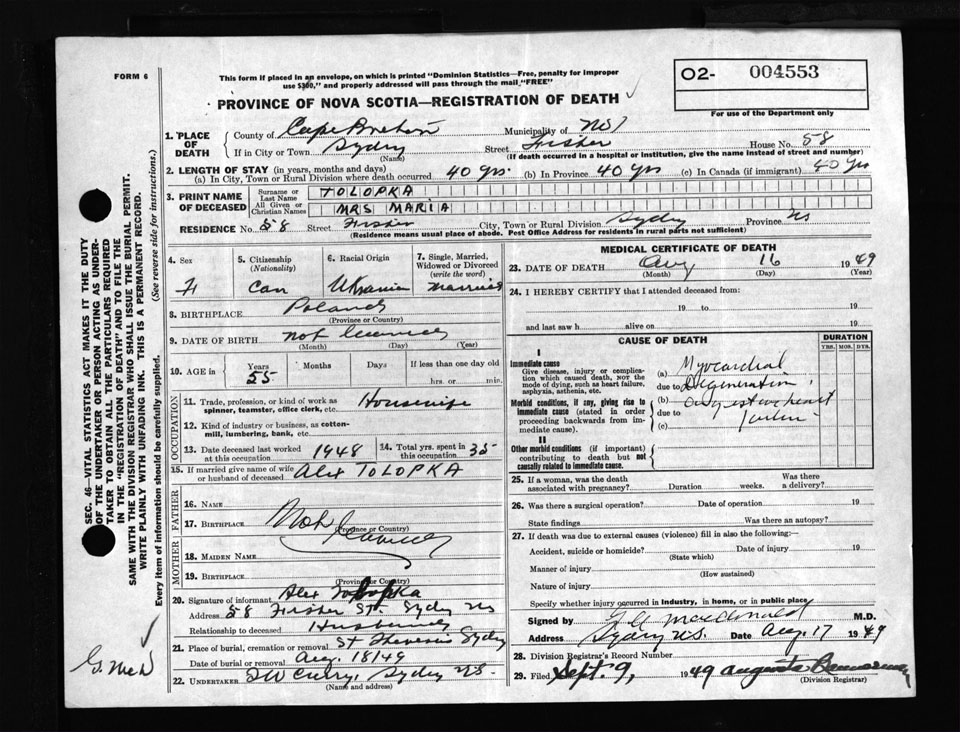 FORM 6
This form if placed in an envelope, on which is printed "Dominion Statistics—Free, penalty for improper
use $300," and properly addressed will pass through the mail "FREE"
O2- 004553
For use of the Department only
PROVINCE OF NOVA SCOTIA—REGISTRATION OF DEATH
1. PLACE OF DEATH
County of Cape Breton Municipality of NS
If in City or Town Sydney Street Fisher House No. 58
(Name) (If death occurred in a hospital or institution, give the name instead of street and number)
2. LENGTH OF STAY (in years, months and days)
(a) In City, Town or Rural Division where death occurred 40 yrs. (b) In Province 40 yrs (c) In Canada (if immigrant) 40 yrs
3. PRINT NAME OF DECEASED
Surname or Last Name TOLOPKA
All Given or Christian Names MRS MARIA
RESIDENCE No. 58 Street Fisher City, Town or Rural Division Sydney Province NS
(Residence means usual place of abode. Post Office Address for residents in rural parts not sufficient)
4. Sex F
5. Citizenship (Nationality) Can
6. Racial Origin Ukranian
7. Single, Married, Widowed or Divorced (write the word) Married
8. BIRTHPLACE Poland
(Province or Country)
9. DATE OF BIRTH not
(Month) (Day) (Year)
10. AGE in Years 55 Months Days If less than one day old
hrs. or min.
OCCUPATION
11. Trade, profession, or kind of work as spinner, teamster, office clerk, etc. Housewife
12. Kind of industry or business, as cotton-mill, lumbering, bank, etc.
13. Date deceased last worked at this occupation 1948
14. Total yrs. spent in this occupation 35
15. If married give name of wife or husband of deceased Alex TOLOPKA
FATHER
16. NAME
17. BIRTHPLACE
(Province or Country)
MOTHER
18. MAIDEN NAME
19. BIRTHPLACE
(Province or Country)
20. Signature of informant Alex Tolopka
Address 58 Fisher St. Sydney NS
Relationship to deceased Husband
21. Place of burial, cremation or removal St Theresas Sydney
Date of burial or removal Aug. 18/49
22. UNDERTAKER Curry, Sydney NS.
(Name and address)
MEDICAL CERTIFICATE OF DEATH
23. DATE OF DEATH Aug 16 1949
(Month) (Day) (Year)
24. I HEREBY CERTIFY that I attended deceased from:
19 to 19
and last saw h alive on 19
CAUSE OF DEATH
DURATION
YRS. MOS. DYS.
I
Immediate cause
Give disease, injury or complication which caused death, not the mode of dying, such as heart failure, asphyxia, asthenia, etc.
(a) Myocardial
due to Degeneration
Morbid conditions, if any, giving rise to immediate cause (stated in order proceeding backwards from immediate cause).
(b) Congestive heart
due to failure
(c)
II
Other morbid conditions (if important) contributing to death but not causally related to immediate cause.
25. If a woman, was the death associated with pregnancy? Duration weeks. Was there a delivery?
26. Was there a surgical operation? Date of operation 19
State findings Was there an autopsy?
27. If death was due to external causes (violence) fill in also the following:—
Accident, suicide or homicide? Date of injury 19
(State which)
Manner of injury
(How sustained)
Nature of injury
Specify whether injury occurred in industry, in home, or in public place
Signed by MacDonald M.D.
Address Sydney N.S. Date Aug. 17 1949
28. Division Registrar's Record Number
29. Filed Sept. 9, 1949 Augusta
(Division Registrar)
SEC. 46—VITAL STATISTICS ACT MAKES IT THE DUTY
OF THE UNDERTAKER OR PERSON ACTING AS UNDER-
TAKER TO OBTAIN ALL THE PARTICULARS REQUIRED
IN THE "REGISTRATION OF DEATH" AND TO FILE THE
SAME WITH THE DIVISION REGISTRAR WHO SHALL ISSUE THE BURIAL PERMIT.
WRITE PLAINLY WITH UNFADING INK. THIS IS A PERMANENT RECORD.
Every item of information should be carefully supplied. (See reverse side for instructions.)